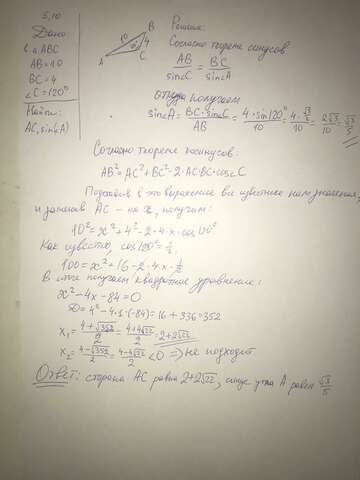 5.10
Дано
в △ABC
AB=10
BC=4
∠C=120°
Найти:
AC, sin∠A)
B
10
4
A
C
Решение:
Согласно теореме синусов
AB/sin∠C = BC/sin∠A
Откуда получаем
sin∠A = BC·sin∠C/AB = 4·sin120°/10 = 4·√3/2/10 = 2√3/10 = √3/5
Согласно теореме косинусов:
AB²=AC²+BC²-2·AC·BC·cos∠C
Подставив в это выражение все известные нам значения,
и заменив AC – на x, получим:
10²=x²+4²-2·4·x·cos120°
Как известно, cos120°=½.
100=x²+16-2·4·x·½
В итоге получаем квадратное уравнение:
x²-4x-84=0
D=4²-4·1·(-84)=16+336=352
x₁=4+√352/2=4+4√22/2=2+2√22
x₂=4-√352/2=4-4√22/2<0 ⇒ не подходит.
Ответ: сторона AC равна 2+2√22, синус угла A равен √3/5